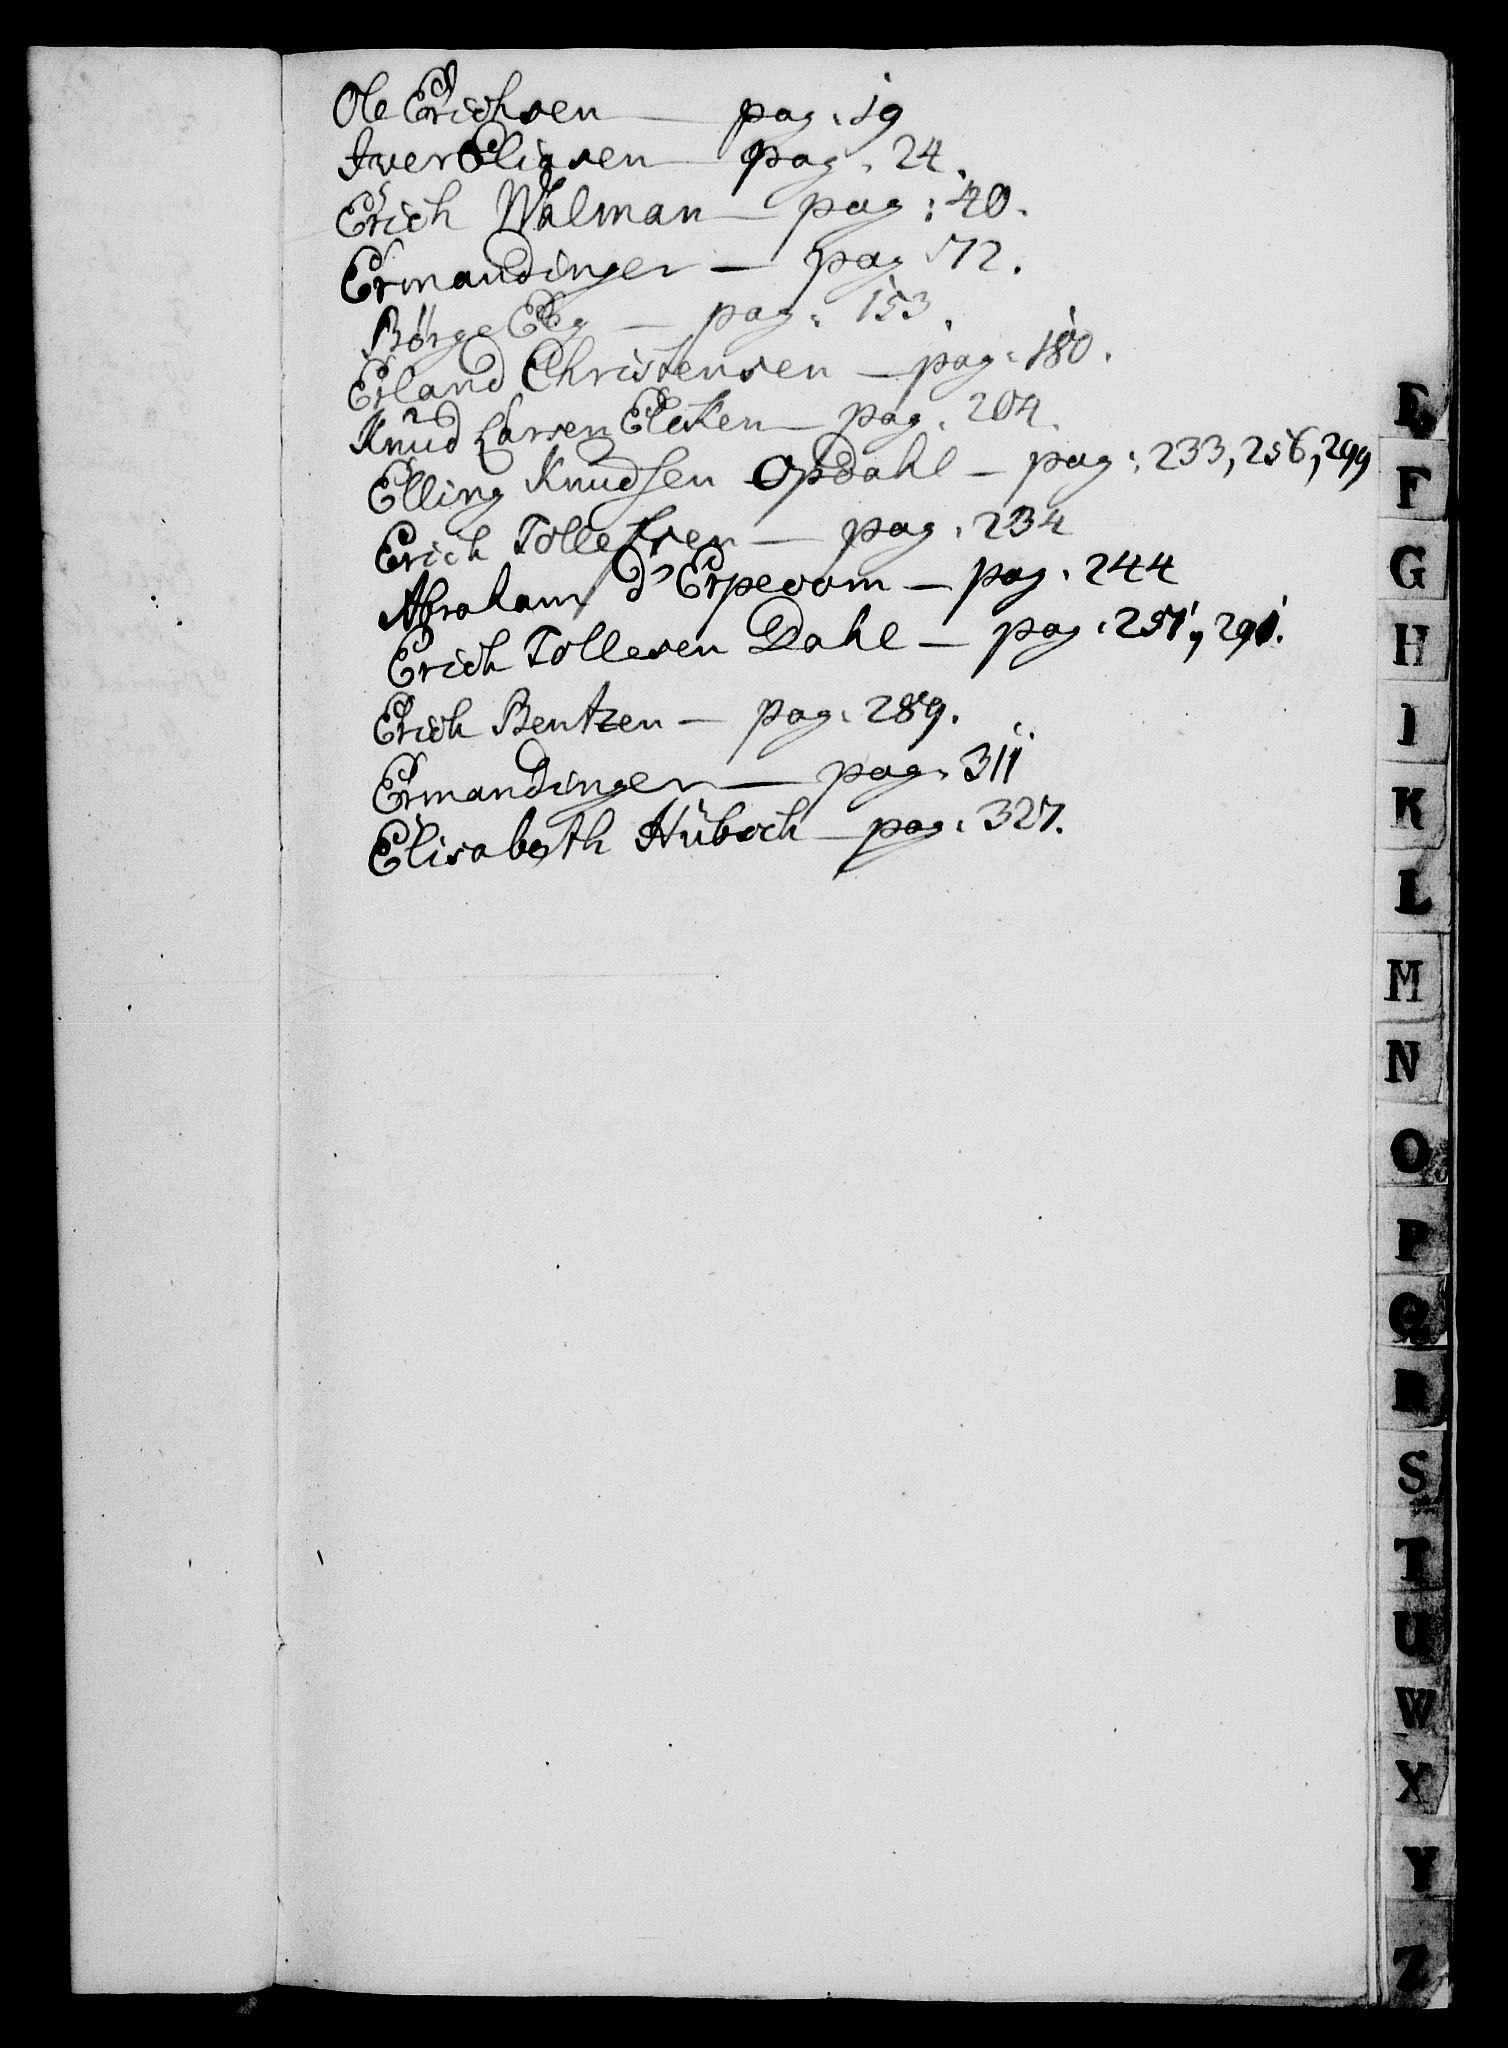 Ole Erichsen — pag. 19
Iver Eliasen — pag. 24.
Erich Walman — pag: 40.
Ermandinger — pag 72.
Börge Elg — pag. 153.
Erland Christensen — pag. 180.
Knud Larsen Eleken — pag. 204.
Elling Knudsen Opdahl — pag. 233, 256, 299
Erich Tollefsen — pag. 234
Abraham d'Erpecom — pag. 244
Erich Tollesen Dahl — pag. 251, 291.
Erich Bentzen — pag. 289.
Ermandinger — pag. 311
Elisabeth Hübsch — pag. 327.
E
F
G
H
I
K
L
M
N
O
P
Q
R
S
T
U
W
X
Y
Z